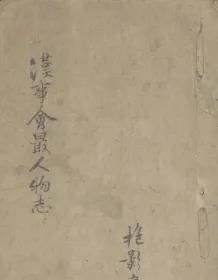 漢事會最人物志
抱影